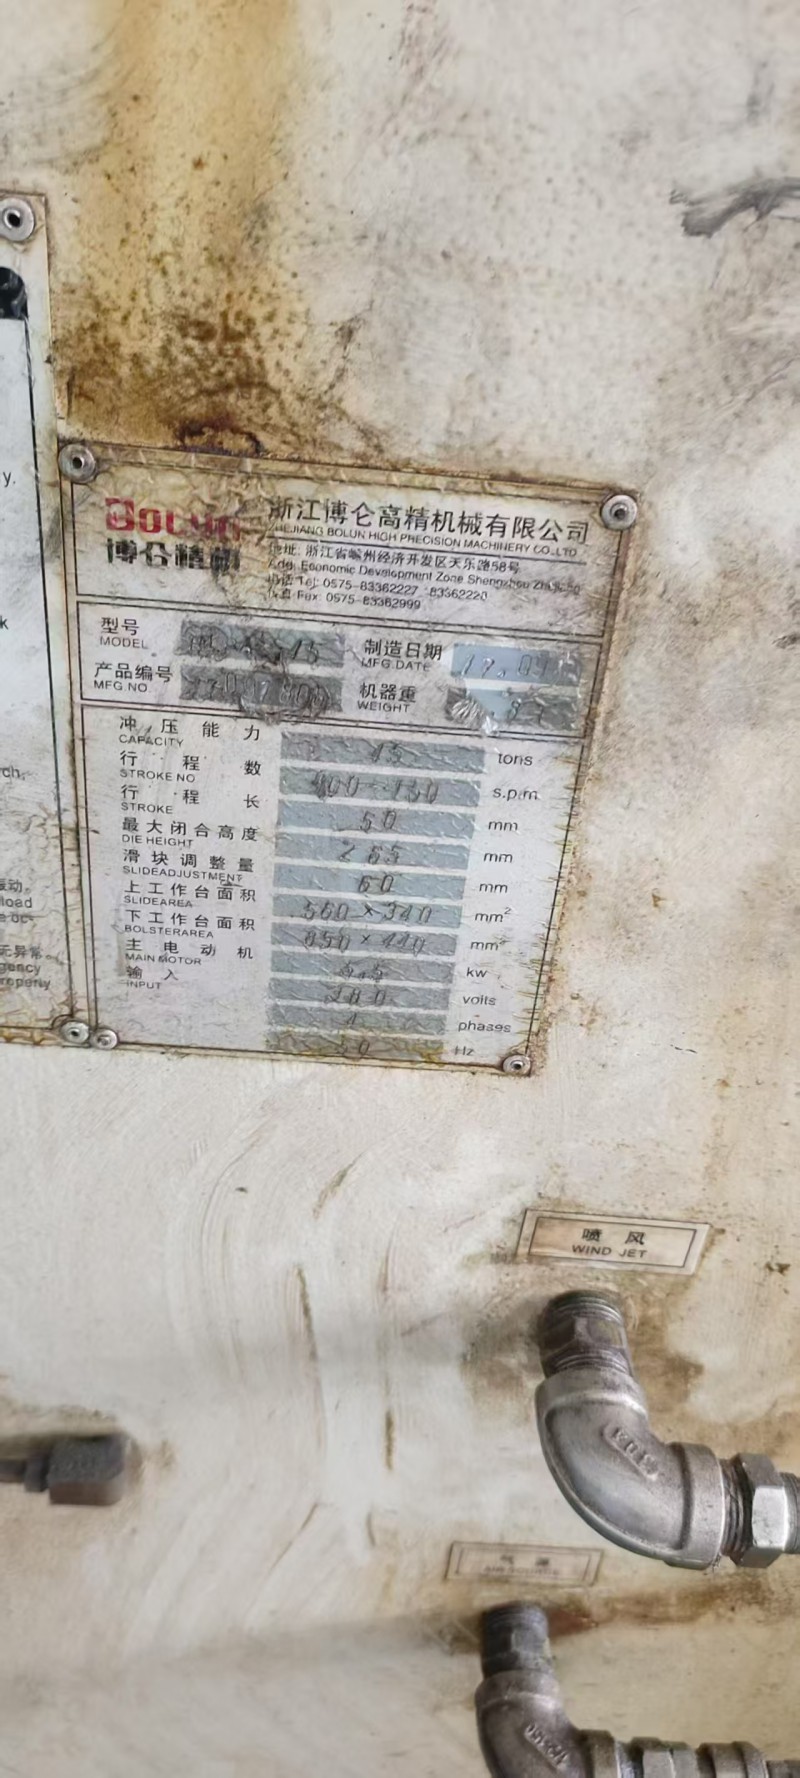 y.
k
ch,
振动。
load
无异常。
gency
roperly
BOLUN
博仑精机
浙江博仑高精机械有限公司
ZHEJIANG BOLUN HIGH PRECISION MACHINERY CO.,LTD
地址: 浙江省嵊州经济开发区天乐路58号
Add: Economic Development Zone Shengzhou Zhejiang
电话 Tel: 0575-83362227 83362220
传真 Fax: 0575-83362999
型号
MODEL
制造日期
MFG.DATE 17.09
产品编号
MFG NO.
机器重
WEIGHT
冲压能力 45 tons
CAPACITY
行程数 s.p.m
STROKE NO
行程长 50 mm
STROKE
最大闭合高度 265 mm
DIE HEIGHT
滑块调整量 60 mm
SLIDEADJUSTMENT
上工作台面积 560×340 mm²
SLIDEAREA
下工作台面积 850×440 mm²
BOLSTERAREA
主电动机 5.5 kw
MAIN MOTOR
输入 380 volts
INPUT
phases
50 Hz
喷风
WIND JET
气源